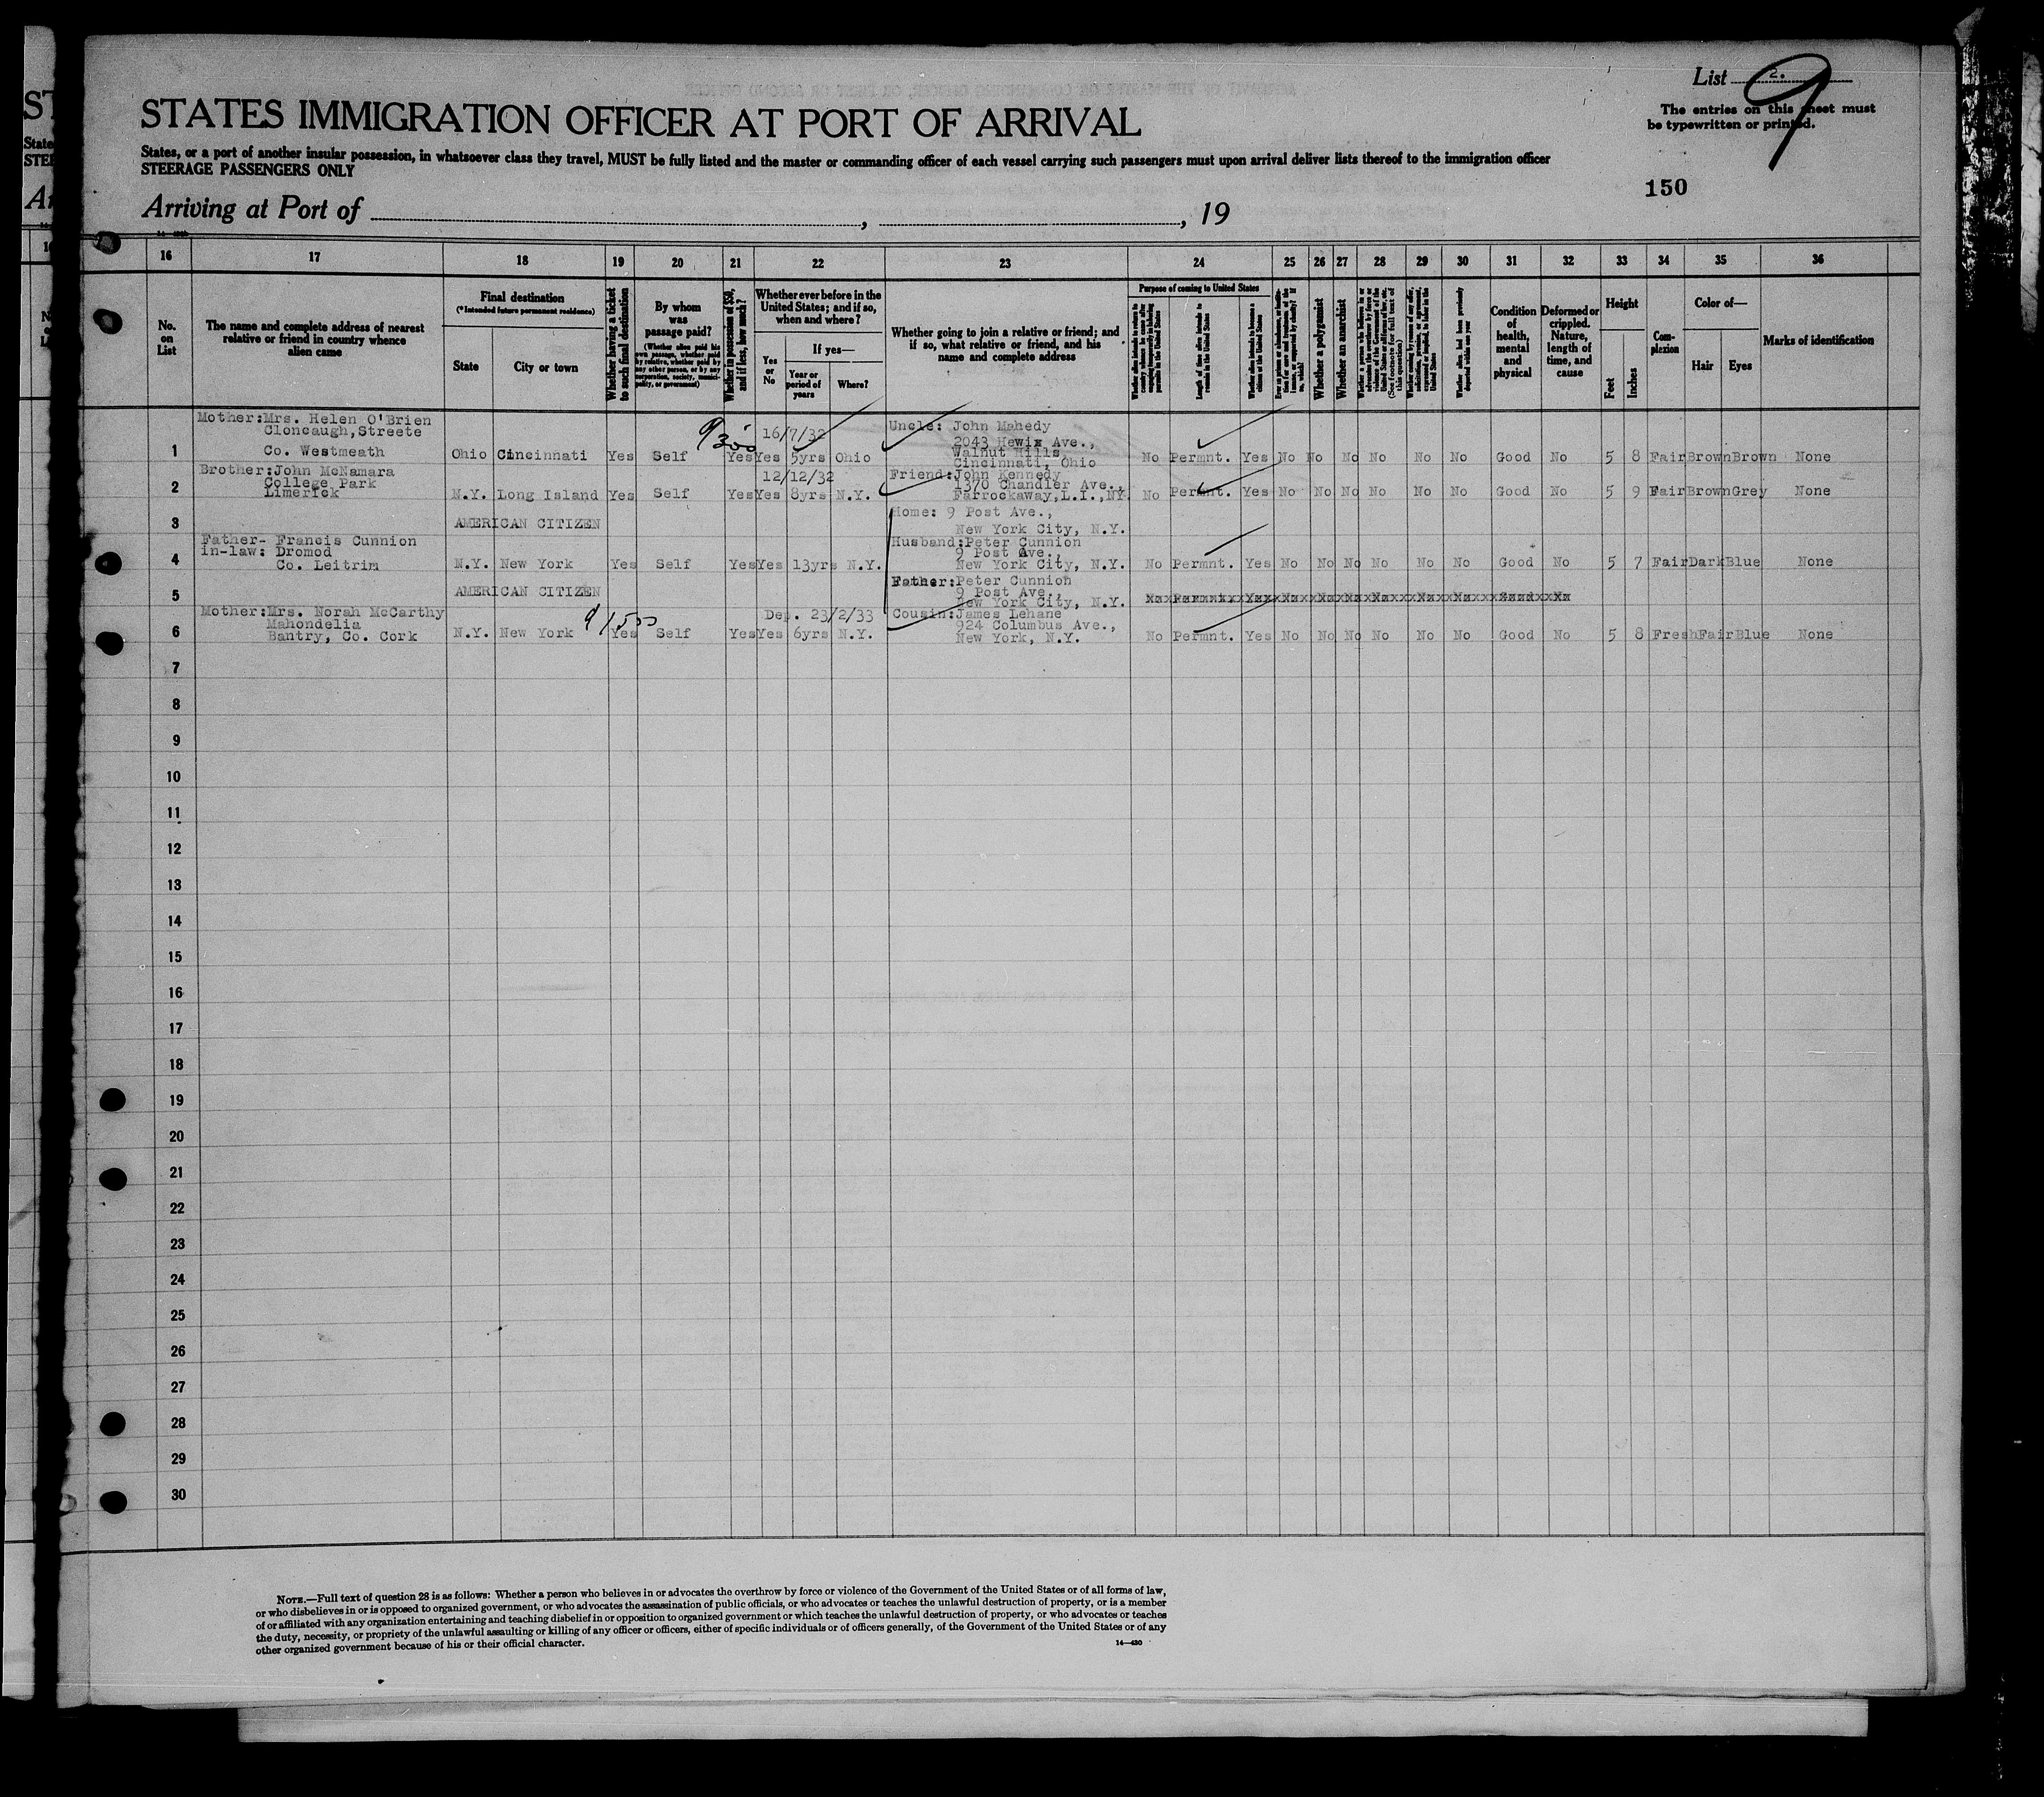 List 2.
9
The entries on this sheet must
be typewritten or printed.
150
STATES IMMIGRATION OFFICER AT PORT OF ARRIVAL
States, or a port of another insular possession, in whatsoever class they travel, MUST be fully listed and the master or commanding officer of each vessel carrying such passengers must upon arrival deliver lists thereof to the immigration officer
STEERAGE PASSENGERS ONLY
Arriving at Port of , , 19
16 17 18 19 20 21 22 23 24 25 26 27 28 29 30 31 32 33 34 35 36
No. on List
The name and complete address of nearest relative or friend in country whence alien came
Final destination
(*Intended future permanent residence)
State
City or town
Whether having a ticket to such final destination
By whom was passage paid?
(Whether alien paid his own passage, whether paid by relative, whether paid by any other person, or by any corporation, society, municipality, or government)
Whether in possession of $50, and if less, how much?
Whether ever before in the United States; and if so, when and where?
Yes or No
If yes—
Year or period of years
Where?
Whether going to join a relative or friend; and if so, what relative or friend, and his name and complete address
Purpose of coming to United States
Length of time alien intends to remain in the United States
Whether alien intends to become a citizen of the United States
Whether a polygamist
Whether an anarchist
(See footnote for full text of this question)
Whether alien had been previously deported within one year
Condition of health, mental and physical
Deformed or crippled. Nature, length of time, and cause
Height
Feet
Inches
Complexion
Color of—
Hair
Eyes
Marks of identification
Mother:Mrs. Helen O'Brien
Cloncaugh,Streete
Co. Westmeath
1 Ohio Cincinnati Yes Self Yes Yes 16/7/32 5yrs Ohio
Uncle: John Mahedy
2043 Hewix Ave.,
Walnut Hills,
Cincinnati, Ohio
No Permnt. Yes No No No No No No Good No 5 8 Fair Brown Brown None
Brother:John McNamara
College Park
Limerick
2 N.Y. Long Island Yes Self Yes Yes 12/12/32 8yrs N.Y.
Friend:John Kennedy
1370 Chandler Ave.,
Farrockaway,L.I.,NY.
No Permnt. Yes No No No No No No Good No 5 9 Fair Brown Grey None
3 AMERICAN CITIZEN
Home: 9 Post Ave.,
New York City, N.Y.
Father- Francis Cunnion
in-law: Dromod
Co. Leitrim
4 N.Y. New York Yes Self Yes Yes 13yrs N.Y.
Husband:Peter Cunnion
9 Post Ave.,
New York City, N.Y.
No Permnt. Yes No No No No No No Good No 5 7 Fair Dark Blue None
5 AMERICAN CITIZEN
Father:Peter Cunnion
9 Post Ave.,
New York City, N.Y.
Mother:Mrs. Norah McCarthy
Mahondelia
Bantry, Co. Cork
6 N.Y. New York Yes Self Yes Yes Dep. 23/2/33 6yrs N.Y.
Cousin:James Lehane
924 Columbus Ave.,
New York, N.Y.
No Permnt. Yes No No No No No No Good No 5 8 Fresh Fair Blue None
7
8
9
10
11
12
13
14
15
16
17
18
19
20
21
22
23
24
25
26
27
28
29
30
NOTE.—Full text of question 28 is as follows: Whether a person who believes in or advocates the overthrow by force or violence of the Government of the United States or of all forms of law,
or who disbelieves in or is opposed to organized government, or who advocates the assassination of public officials, or who advocates or teaches the unlawful destruction of property, or is a member
of or affiliated with any organization entertaining and teaching disbelief in or opposition to organized government or which teaches the unlawful destruction of property, or who advocates or teaches
the duty, necessity, or propriety of the unlawful assaulting or killing of any officer or officers, either of specific individuals or of officers generally, of the Government of the United States or of any
other organized government because of his or their official character.
14—430